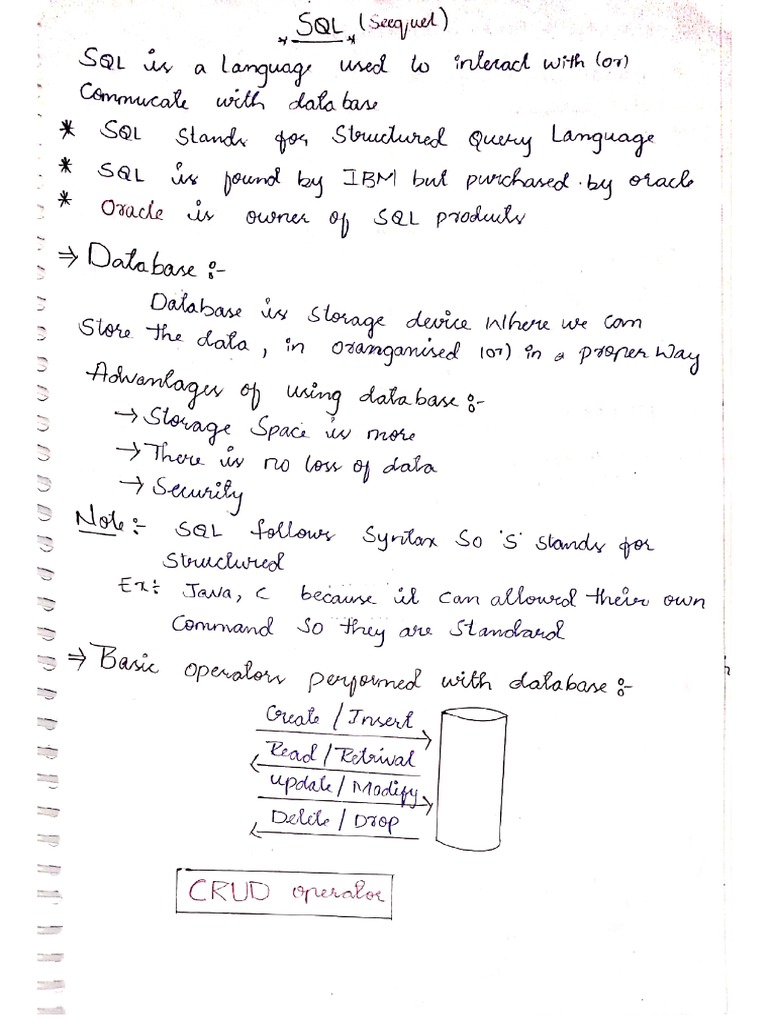 * SQL * (Seequel)
SQL is a language used to interact with (or)
Commucate with database
* SQL Stands for Structured Query Language
* SQL is found by IBM but purchased by oracle
* Oracle is owner of SQL products
⇒ Database :-
Database is storage device where we can
store the data, in oranganised (or) in a proper way
Advantages of using database :-
→ Storage Space is more
→ There is no loss of data
→ Security
Note :- SQL follows Syntax So 'S' stands for
Structured
Ex: Java, C because it can allowed their own
Command so they are Standard
⇒ Basic operators performed with database :-
Create / Insert
Read / Retrival
update / Modify
Delete / Drop
CRUD operator